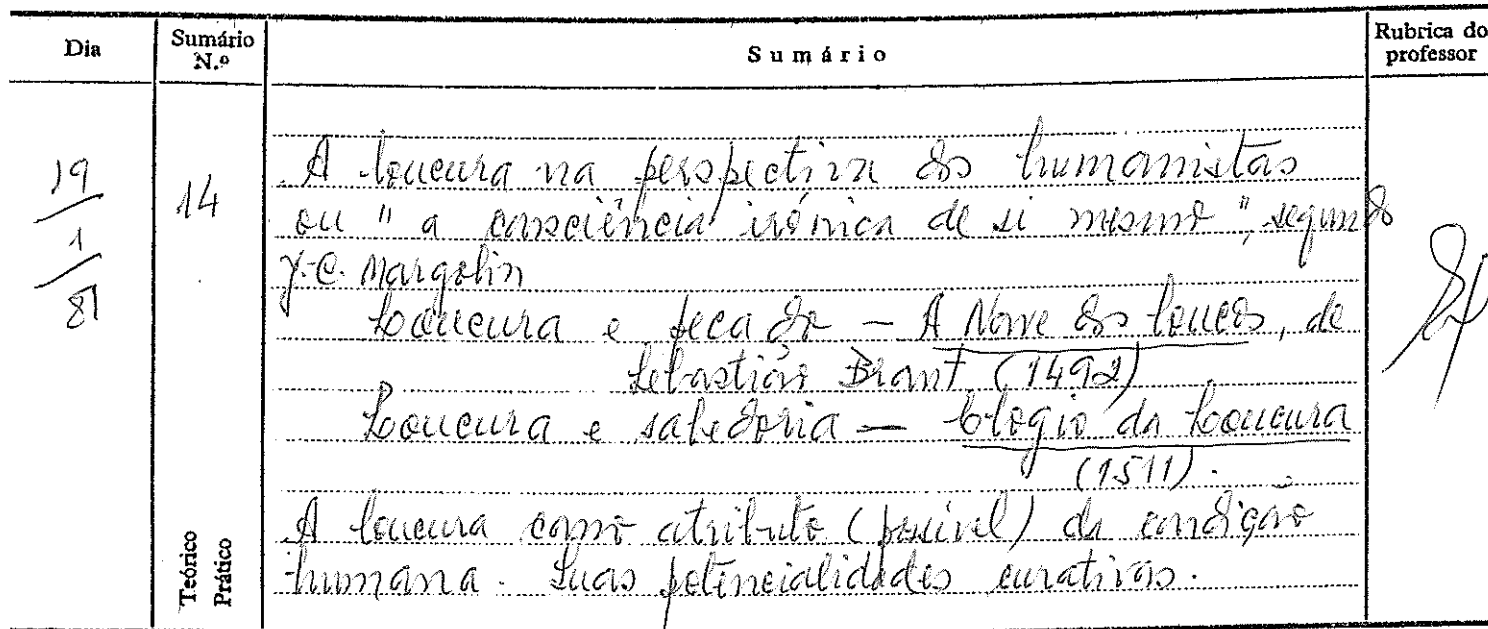 Dia
Sumário N.º
Sumário
Rubrica do professor
19/1/81
14
A loucura na perspectiva dos humanistas
ou "a consciência irónica de si mesmo", segundo
J.-C. Margolin
Loucura e pecado – A Nave dos loucos, de
Sebastião Brant (1492)
Loucura e sabedoria – Elogio da Loucura
(1511).
A loucura como atributo (possível) da condição
humana. Suas potencialidades curativas.
Teórico
Prático